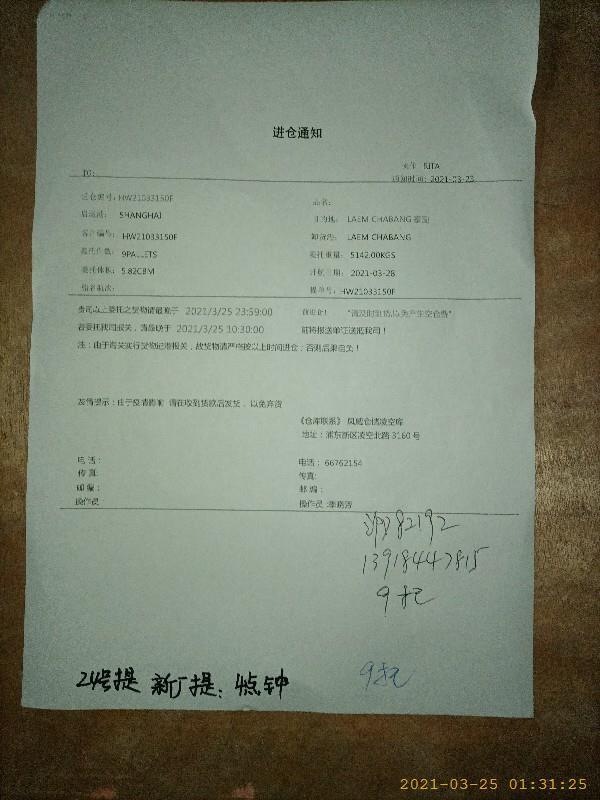 进仓通知
TO:
RITA
时间: 2021-03-23
进仓编号: HW21033150F
品名:
启运港: SHANGHAI
目的地: LAEM CHABANG 泰国
客户编号: HW21033150F
卸货港: LAEM CHABANG
委托件数: 9PALLETS
委托重量: 5142.00KGS
委托体积: 5.82CBM
计航日期: 2021-03-28
船名航次:
提单号: HW21033150F
贵司以上委托之货物请最晚于 2021/3/25 23:59:00 前进仓! "请及时到货,以免产生空仓费"
若委托我司报关,请最晚于 2021/3/25 10:30:00 前将报送单证送抵我司!
注:由于海关实行货物运港报关,故货物请严格按以上时间进仓,否则后果自负!
友情提示:由于疫情影响 请在收到货款后发货,以免弃货
《仓库联系》 凤威仓储凌空库
地址:浦东新区凌空北路 3160 号
电话:
电话: 66762154
传真:
传真:
邮编:
邮编:
操作员
操作员
82192
13918447815
9托
9托
24号提 新厂提: 4点钟
2021-03-25 01:31:25